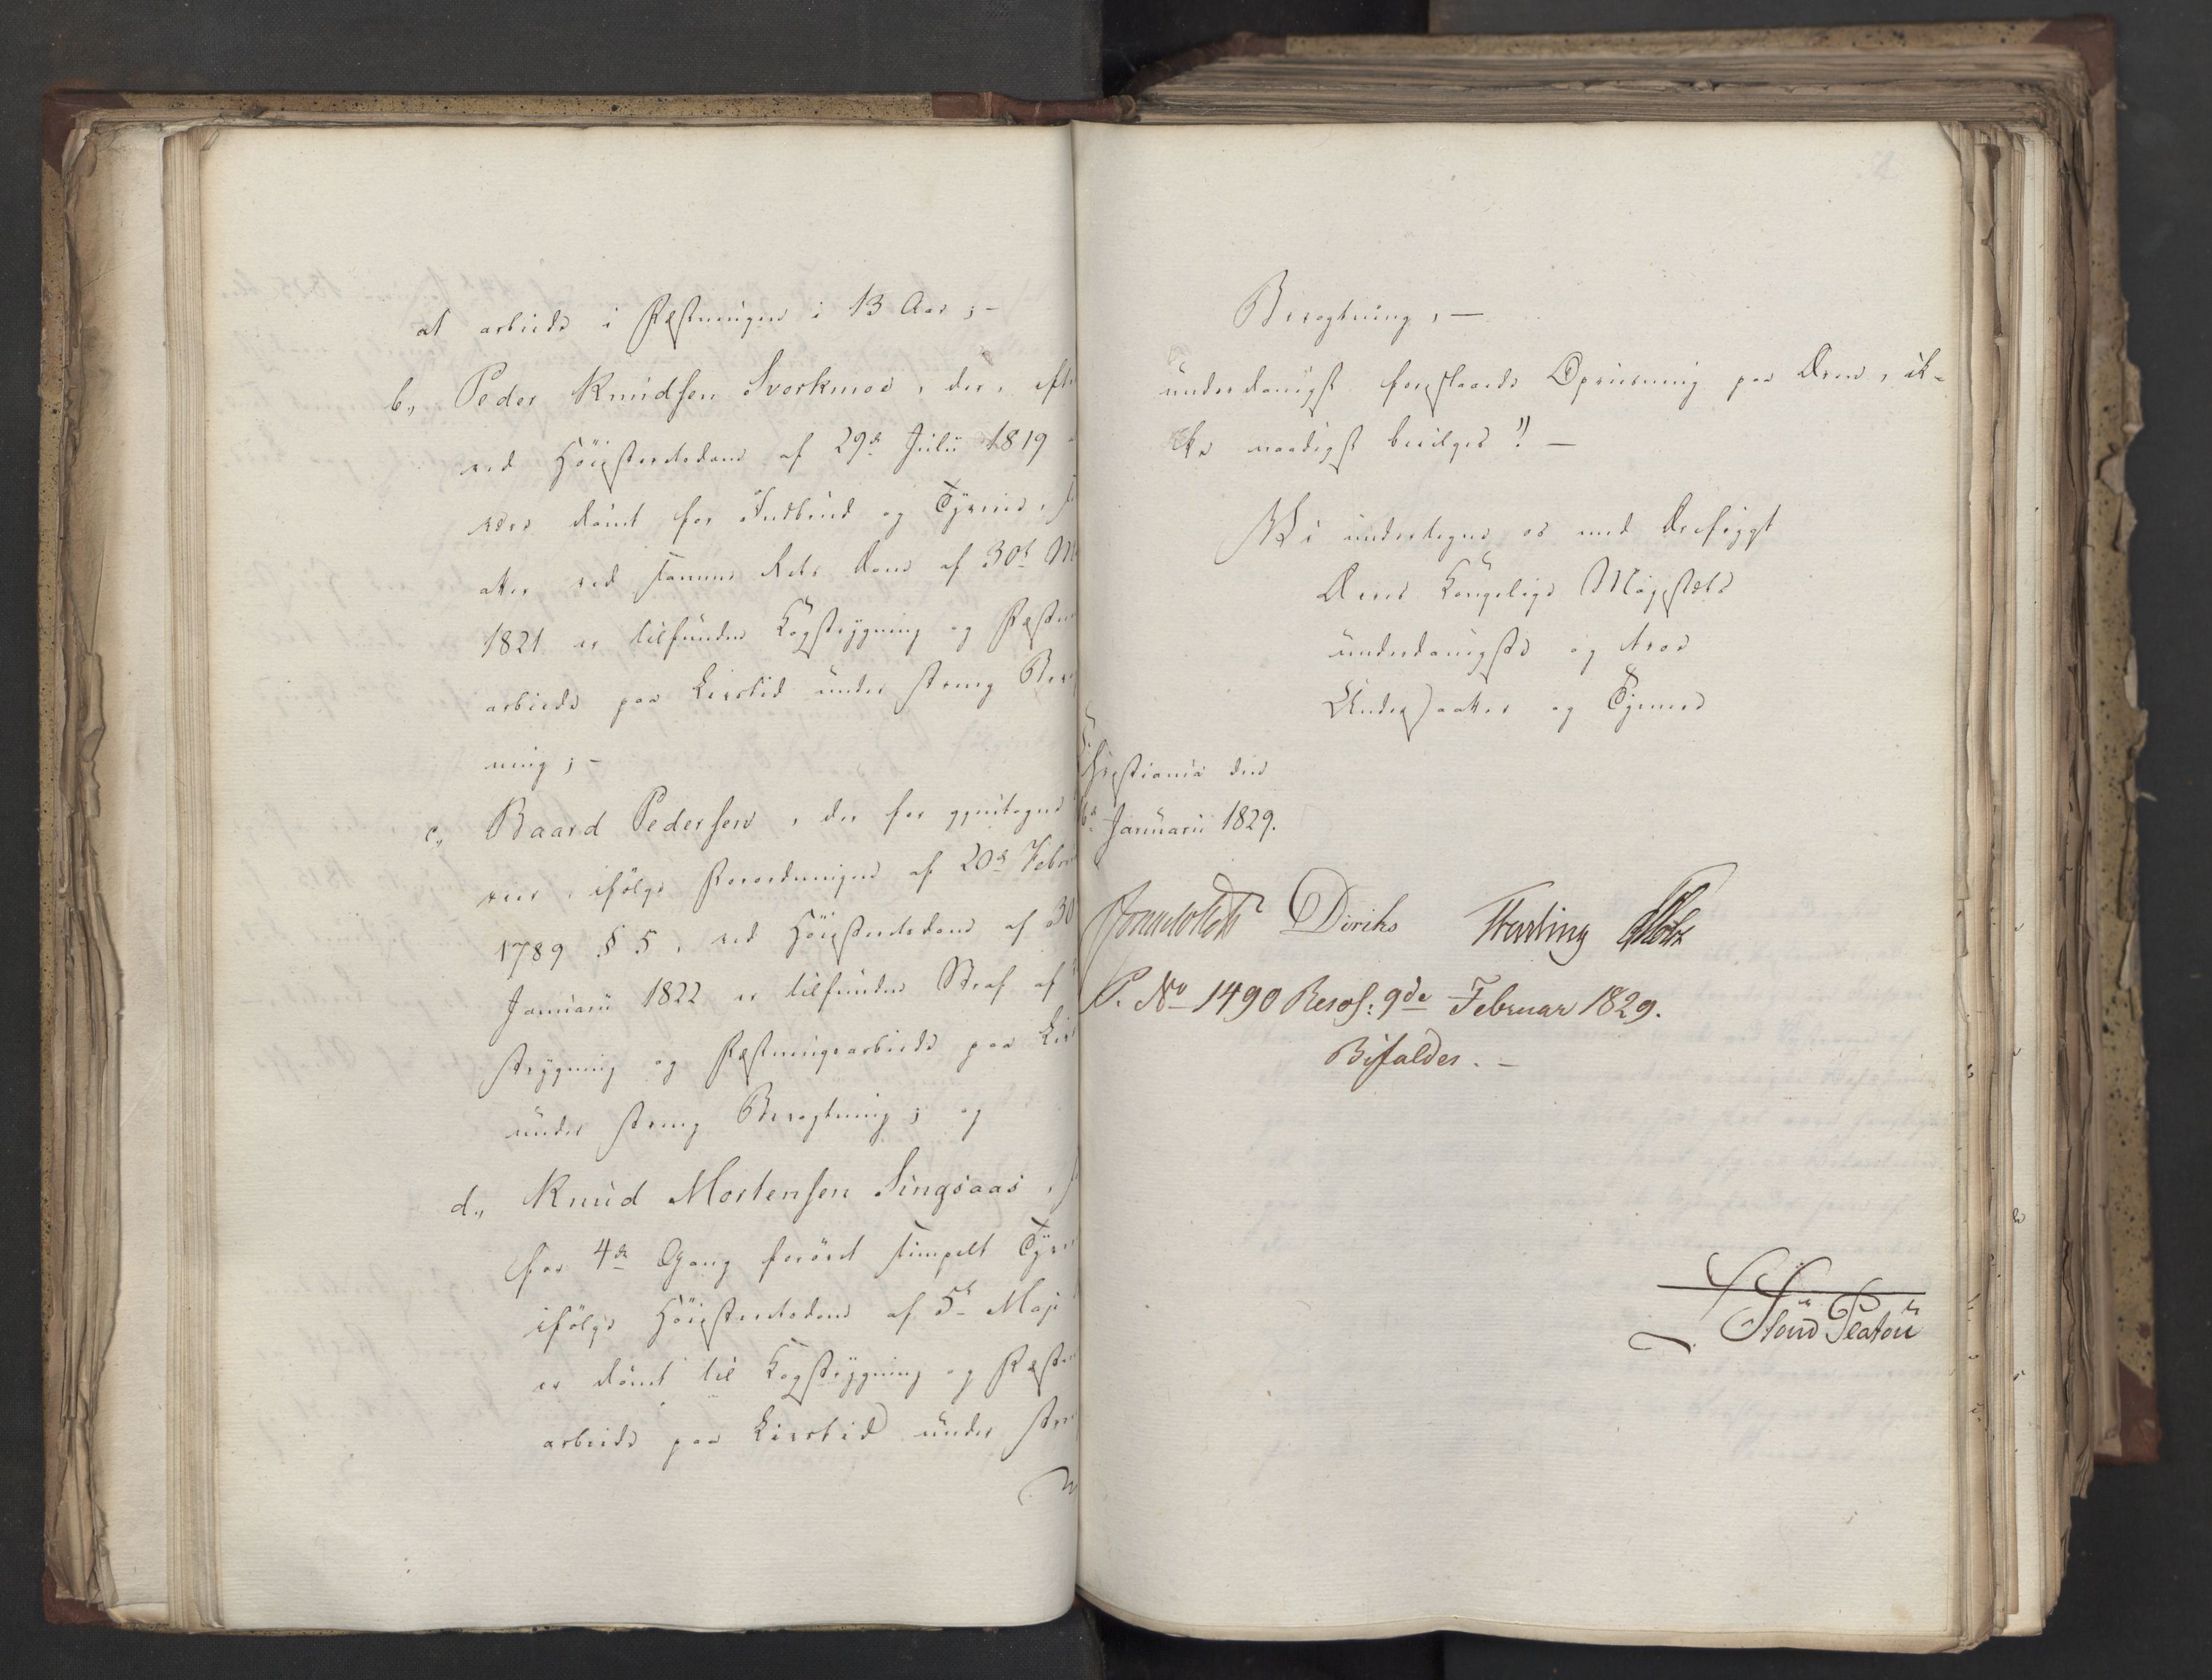 at arbeide i Fæstningen i 13 Aar; -
b., Peder Knudsen Svorkmoe, der, efte
ved Höiesteretsdom af 29de Julii 1819
være dömt for Indbrud og Tyverie,
atter ved samme Rets Dom af 30te M
1821 er tilfunden Kagstrygning og Fæstn
arbeide paa Livstid under streng Bev
ning; -
c., Baard Pedersen, der for igjentagne
rier, ifölge Forordningen af 20de Febr
1789 § 5, ved Höiesteretsdom af 30
Januarii 1822 er tilfunden Straf af
strygning og Fæstningsarbeide paa Liv
under streng Bevogtning; og
d., Knud Mortensen Singsaas,
for 4de Gang forövet simpelt Tyve
ifölge Höiesteretsdom af 5te Maji
er dömt til Kagstrygning og Fæstn
arbeide paa Livstid under stre
Bevogtning, -
underdanigst foreslaaede Opreisning paa Æren, ik-
ke naadigst bevilges". -
Vi undertegne os med Ærefrygt
Deres Kongelige Majestæts
underdanigste og troe
Undersaatter og Tjenere
Christiania den
6te Januarii 1829.
Diriks
P. No 1490 Resol: 9de Februar 1829.
Bifaldes. -